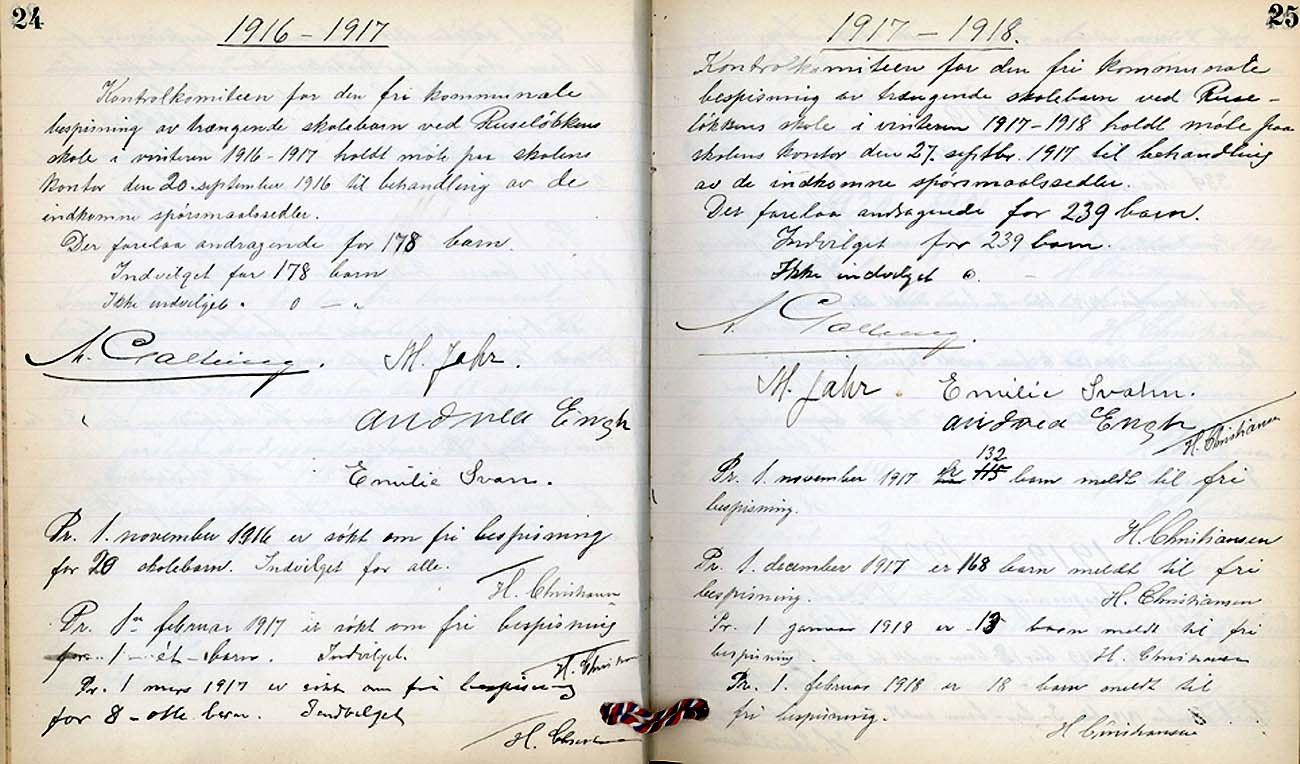 24
1916 – 1917
Kontrolkomiteen for den fri kommunale
bespisning av trængende skolebarn ved Ruseløkkens
skole i vinteren 1916-1917 holdt møte paa skolens
kontor den 20. september 1916 til behandling av de
indkomne spørsmaalssedler.
Der forelaa andragende for 178 barn.
Indvilget for 178 barn
Ikke indvilget " 0 — "
M. Jahr.
Andrea Engh
Emilie Svarn.
Pr. 1. november 1916 er søkt om fri bespisning
for 20 skolebarn. Indvilget for alle.
H. Christiansen
Pr. 1ste februar 1917 er søkt om fri bespisning
for 1 – et – barn. Indvilget.
H. Christiansen
Pr. 1 mars 1917 er søkt om fri bespisning
for 8 – otte barn. Indvilget
H. Christiansen
25
1917 – 1918.
Kontrolkomiteen for den fri kommunale
bespisning av trængende skolebarn ved Ruse-
løkkens skole i vinteren 1917-1918 holdt møte paa
skolens kontor den 27. septbr. 1917 til behandling
av de indkomne spørsmaalssedler.
Der forelaa andragende for 239 barn.
Indvilget for 239 barn.
Ikke indvilget 0.
M. Jahr. Emilie Svarn.
Andrea Engh
H. Christiansen
132
Pr. 1. november 1917 er 115 barn meldt til fri
bespisning.
H. Christiansen
Pr. 1. december 1917 er 168 barn meldt til fri
bespisning.
H. Christiansen
Pr. 1 januar 1918 er 13 barn meldt til fri
bespisning.
H. Christiansen
Pr. 1. februar 1918 er 18 – barn meldt til
fri bespisning.
H Christiansen